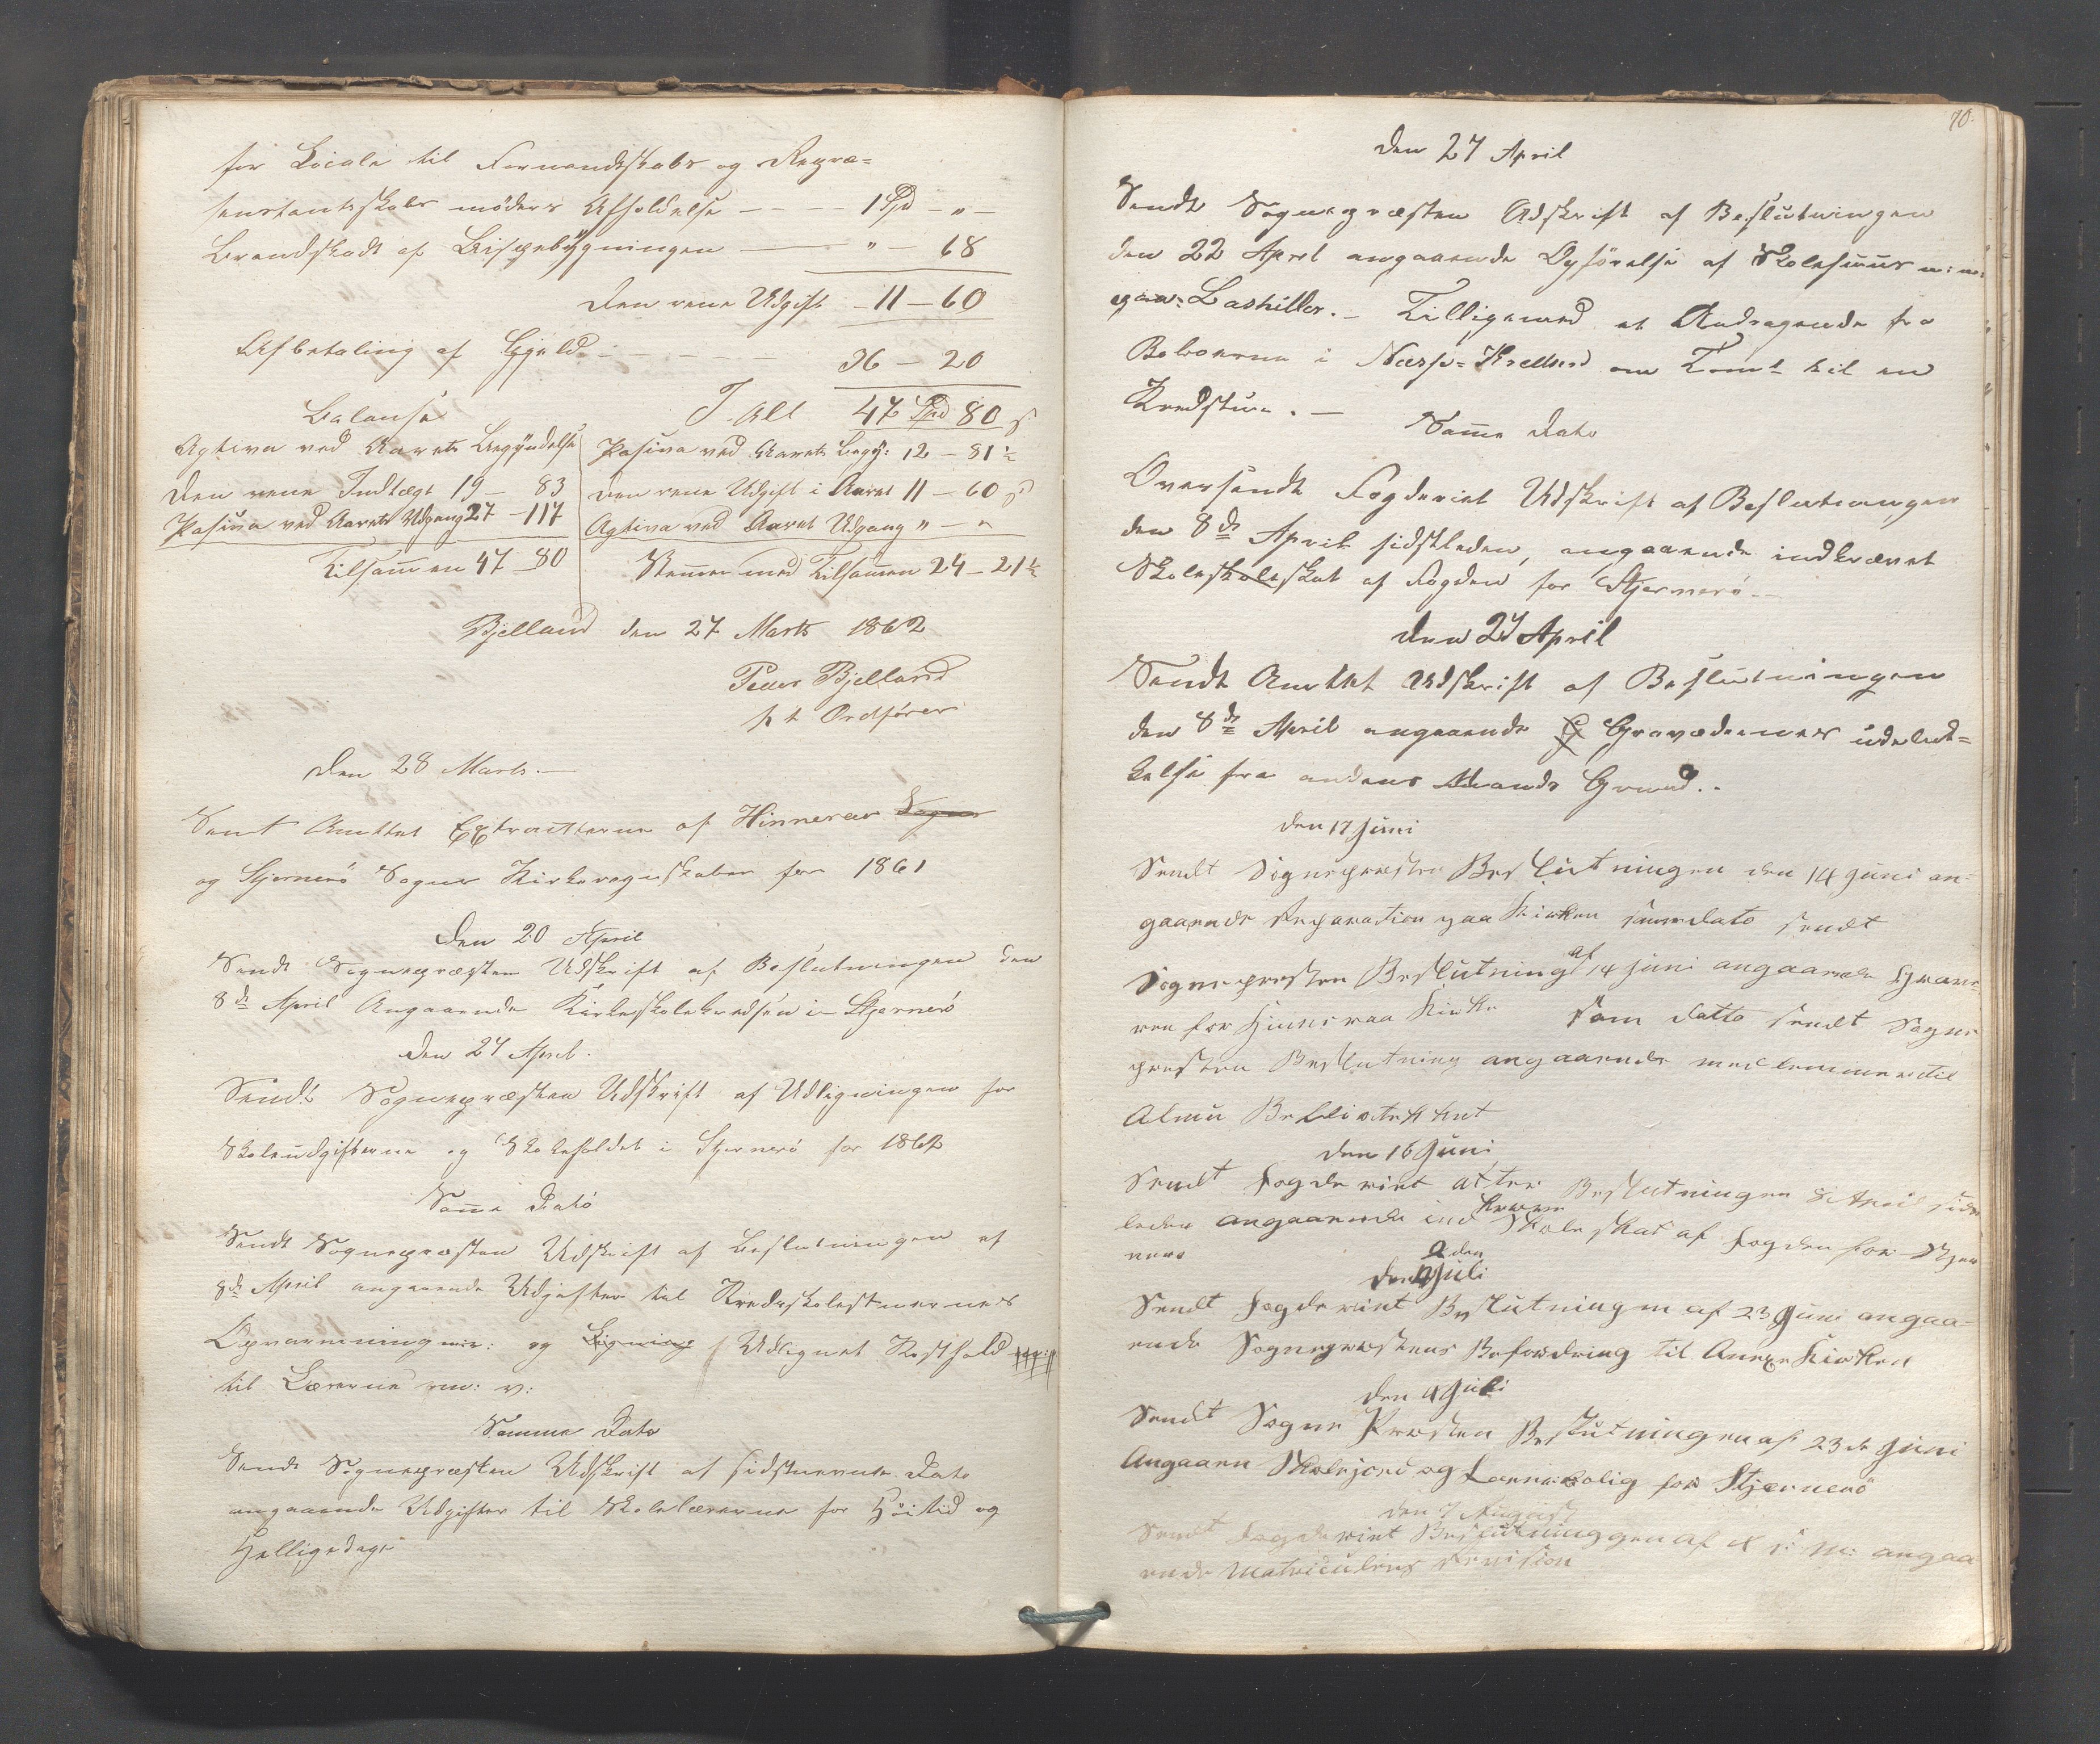 for Locale til Formandskabs og Repræ=
sentantskabs møders Afholdelse — 1 Spd — " —
Brandskade af Bispebygningen — " — 68
den rene Udgift — 11 — 60
Afbetaling af Gjeld — 36 — 20
I Alt 47 Spd 80 s
Balanse
Agtiva ved Aarets Begyndelse
Pasiva ved Aarets Begy: 12 — 81 ½
den rene Indtægt 19 — 83
den rene Udgift i Aaret 11 — 60 s
Pasiva ved Aarets Udgang 27 — 117
Agtiva ved Aaret Udgang " — "
Tilsammen 47 — 80
Stemmer med Tilsammen 24 — 21 ½
Bjelland den 27 Marts 1862
Peder Bjelland
p t Ordfører
Den 28 Marts. —
Sent Amtet Extracterne af Hinneraa Sogns
og Stjernerö Sogns Kirkeregnskaber for 1861
Den 20 April
Sendt Sognepræsten Udskrift af Beslutningen den
8de April Angaaende Kirkeskolekredsen i Stjernerö
den 27 April.
Sendt Sognepræsten Udskrift af Udligningen for
Skoleudgifterne og Skoleholdet i Stjernerö for 1862
Samme Dato
Sendt Sognepræsten Udskrift af Beslutningen af
8de April angaaende Udgifter til Kredsskolestuernes
Opvarmning og Ligning Udlignet Kosthold
til Lærerne m: v:
Samme Dato
Sendt Sognepræsten Udskrift af sidstnevnte Dato
angaaende Udgifter til Skolelærerne for Höitid og
Helligedage
70.
den 27 April
Sendt Sognepræsten Udskrift af Beslutningen
den 22 April angaaende Opförelse af Skolehuus m: m:
paa Lashiller. — Tilligemed et Andragende fra
Beboerne i om Tomt til en
Kredstue. —
Samme Dato
Oversendt Fogderiet Udskrift af Beslutningen
den 8de April sidstleden, angaaende indkrævet
Skoleskoleskat af Fogden for Stjernerö —
den 27 April
Sendt Amtet Udskrift af Beslutningen
den 8de April angaaende G Gravædernes udeluk=
kelse fra andens Mands Grund..
den 17 Juni
Sendt Sognepresten Beslutningen den 14 Juni an=
gaaende Reparation paa Kirken samedato sendt
Sognepresten Beslutning af 14 Juni angaaende Grave=
ren for Hinneraa Kirke Sam datto sendt Sogne
presten Beslutning angaaende medlemmer til
Almu Bebliotekket
den 16 Juni
Sendt Fogderiet atter Beslutningen 8 April sidst
leden angaaende ind kreven Skoleskat af Fogden for Stjer
nerø
2 den
den Juli
Sendt Fogderiet Beslutningen af 23 Juni angaa=
ende Sogneprestens Befordring til Anexe Kirken
den 4 Juli
Sendt Sogne Presten Beslutningen af 23de Juni
Angaaen Skolejord og Lærerbolig for Stjærnerö
den 7 August
Sendt Fogderiet Beslutninggen af s: M: angaa
ende Matriculens Revision